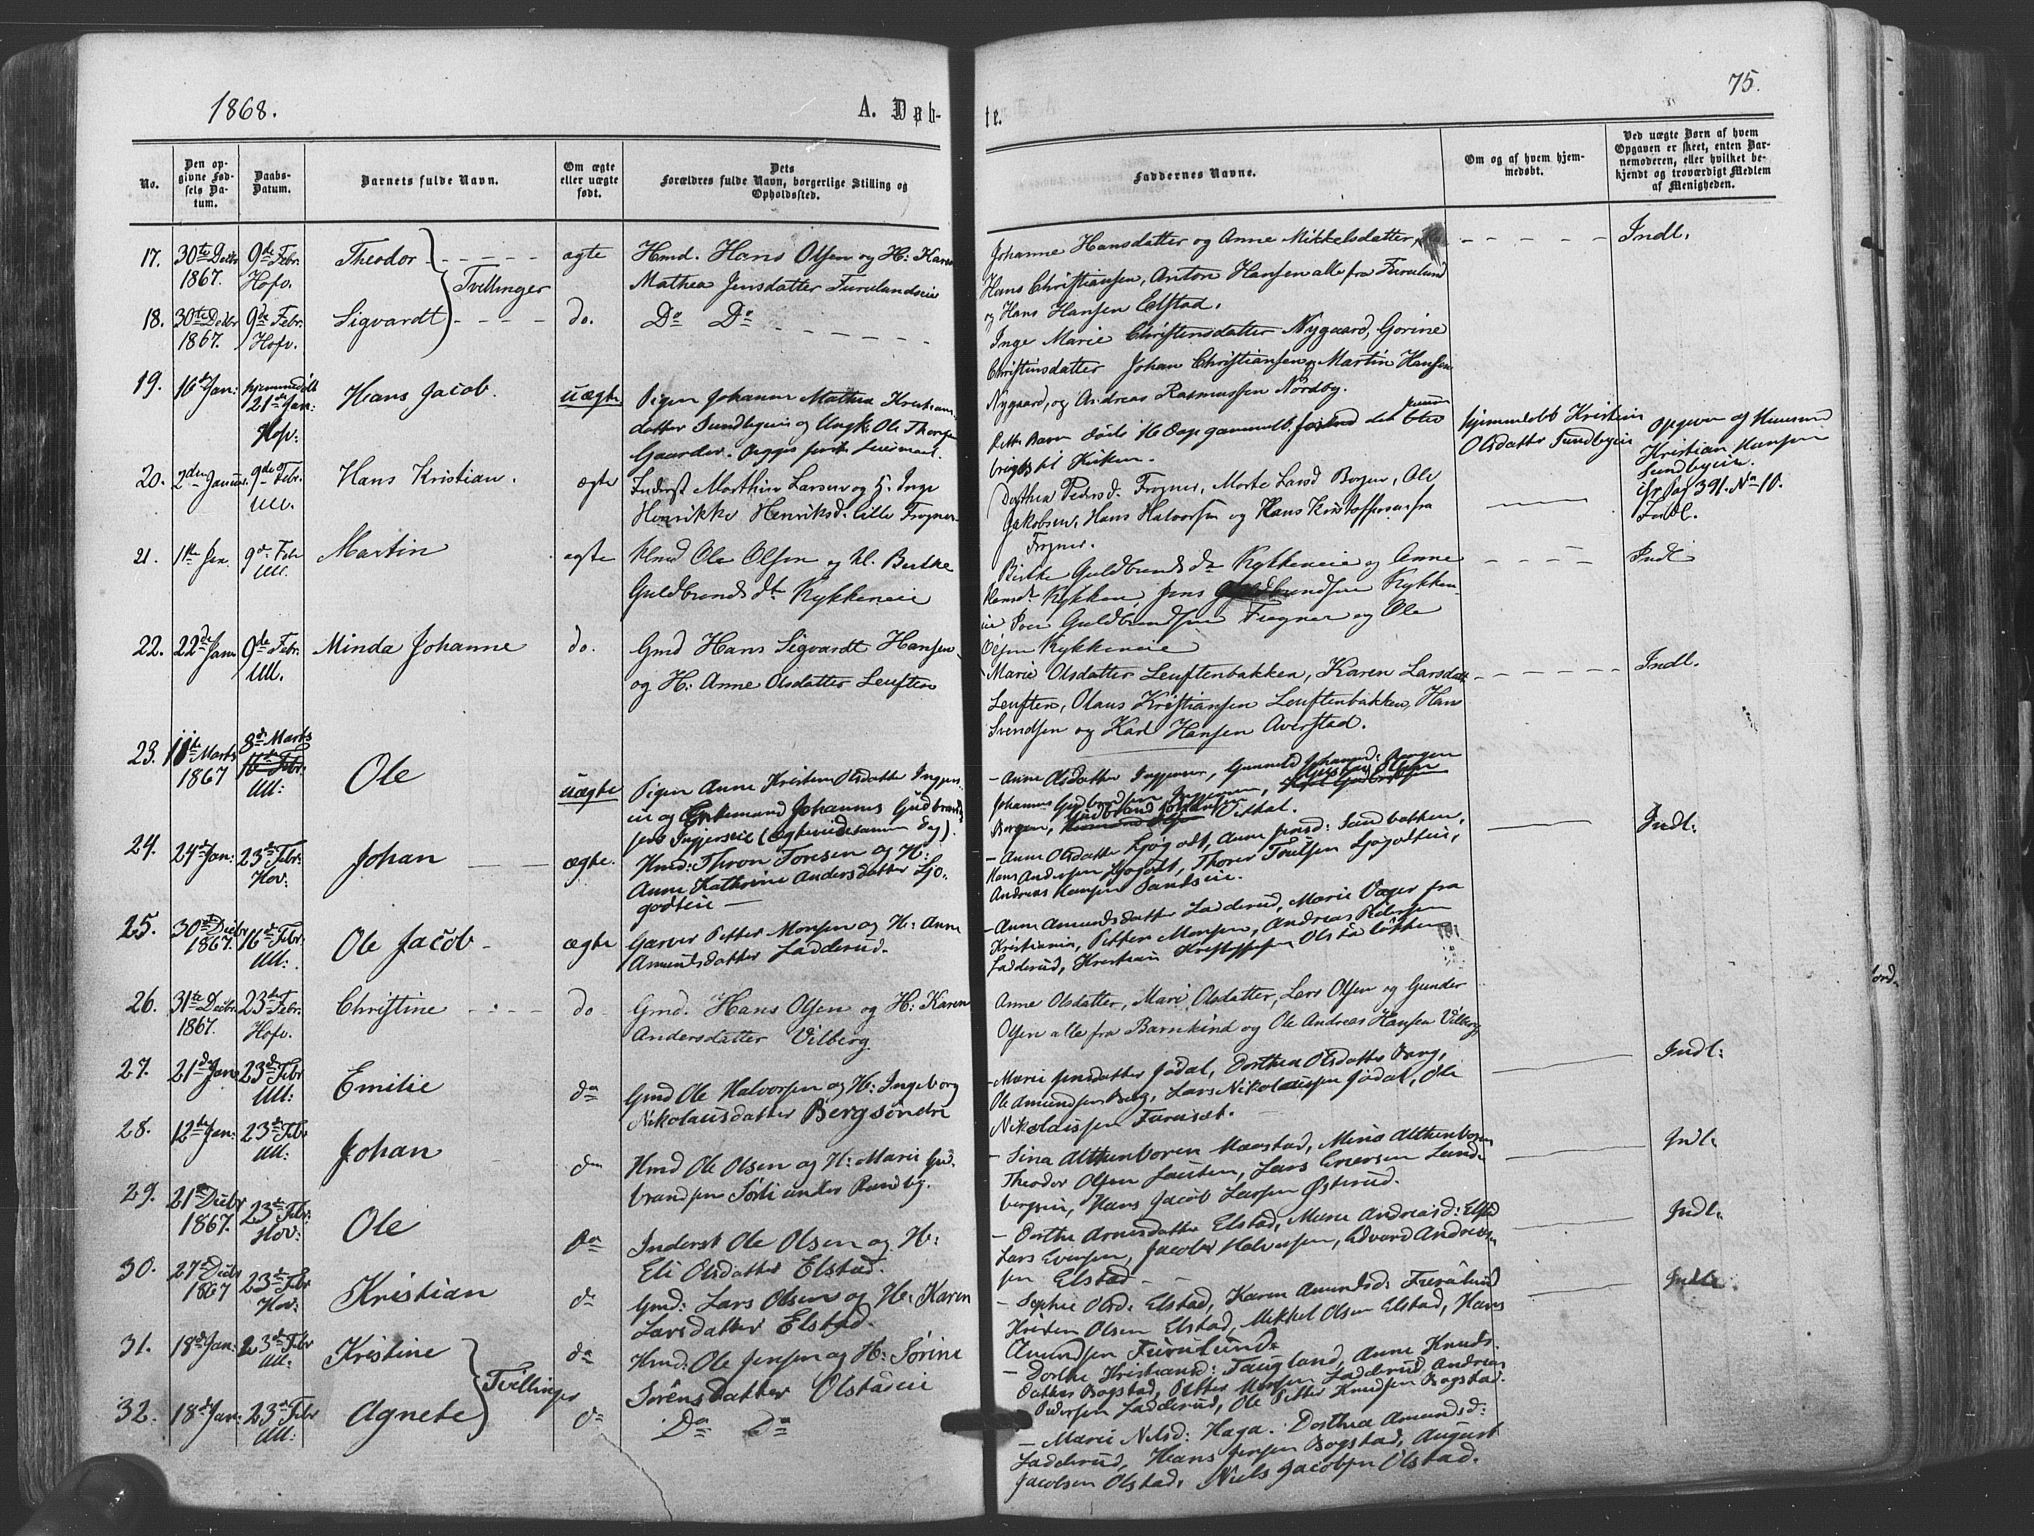 1868.
A. Døb-
te.
75.
No.
Den op-
givne Fød-
sels Da-
tum.
Daabs-
Datum.
Barnets fulde Navn.
Om ægte
eller uægte
født.
Dets
Forældres fulde Navn, borgerlige Stilling og
Opholdssted.
Faddernes Navne.
Om og af hvem hjem-
medøbt.
Ved uægte Børn af hvem
Opgaven er skeet, enten Bar-
nemoderen, eller hvilket be-
kjendt og troværdigt Medlem
af Menigheden.
17. 30te Decbr 9de Febr. Theodor ægte Hmd. Hans Olsen og H: Karen
1867. Hofv. Tvillinger Mathea Jensdatter Furulundseie
Johanne Hansdatter og Anne Mikkelsdatter Indl.
Hans Christiansen, Anton Hansen alle fra Furulund
og Hans Hansen Elstad.
18. 30te Decbr 9de Febr. Sigvardt do. Do Do
1867. Hofv.
Inge Marie Christensdatter Nygaard, Gorine
Christinsdatter Johan Christiansen og Martin Hansen
Nygaard, og Andreas Rasmussen Nordby.
19. 16de Jan: hjemmedøbt Hans Jacob. uægte Pigen Johanne Mathea Kristians-
21de Jan: datter Sundbyeie og Ungk. Ole Thorsen
Hofv: Gaarder.
Dette Barn døde 16 Dage gammelt. forend det blev
bragt til Kirken.
hjemmedøbt Kristine
Olsdatter Sundbyeie
opgiven af
Kristian Hansen
Sundbyeie.
cfr Pag 391. No 10.
20. 2den Januar 9de Febr. Hans Kristian. ægte Inderst Marthin Larsen og H. Inge
Ull. Henrikke Henriksd. Lille Frogner
Dorthea Pedersd. Frogner, Marte Larsd Borgen, Ole
Jakobsen, Hans Halvorsen og Hans Kristoffersen fra
Frogner.
Indl.
21. 1te Jan 9de Feb Martin ægte Hmd Ole Olsen og H. Berthe
Ull. Guldbrandsdt Kykkeneie
Birthe Guldbrandsdr Kykkeneie og Anne Indl
Hansdr Kykken, Jens Guldbrandsen Kykken-
eie Iver Guldbrandsen Frogner og Ole
Olsen Kykkeneie
22. 22de Jan 9de Febr. Minda Johanne do. Gmd Hans Sigvardt Hansen
Ull. og H: Anne Olsdatter Leuften
Marie Olsdatter Leuftenbakken, Karen Larsdatt Indl.
Leuften, Olaus Kristiansen Leuftenbakken, Han
Svendsen og Karl Hansen Averstad.
23. 11te Marts 8de Marts Ole uægte Pigen Anne Kristine Olsdatter
1867 16de Febr. og Enkemand Johannes Gudbrand-
Ull:
Anne Olsdatter
Johannes Gudbrandsen
Borgen, Vittal.
24. 24de Jan: 23de Febr. Johan ægte. Hmd: Thron Toresen og H:
Hov: Anne Kathrine Andersdatter Ljo-
godteie
Anne Olsdatter Ljogodt, Anne Jensd: Sandbakken, Indl:
Hans Andersen Ljogodt, Thorer Ljogodteie,
Andreas Hansen
25. 30te Decbr 16de Febr. Ole Jacob ægte Garver Petter Monsen og H: Anne
1867. Ull: Amundsdatter Ladderud.
Anne Amundsdatter Ladderud, Marie fra
Kristiania, Petter Monsen, Andreas Pedersen
Ladderud, Kristian Kristoffersen
26. 31te Decbr. 23de Febr. Christine do Gmd. Hans Olsen og H: Karen
1867. Hofv. Andersdatter Vilberg
Anne Olsdatter, Mari Olsdatter, Lars Olsen og Gunder
Olsen alle fra Barnkind og Ole Andreas Hansen Vilberg
27. 21de Jan 23de Febr Emilie do Gmd Ole Halvorsen og H: Ingeborg
Ull: Nikolausdatter Bergsøndre
Marie Jensdatter Jødal, Dorthea Olsdatter Berg, Indl:
Ole Amundsen Berg, Lars Nikolaussen Jødal, Ole
Nikolaissen Furuset.
28. 12te Jan: 23de Febr Johan do Hmd Ole Olsen og H: Marie Gud-
Ull: brandsen under Randby.
Sina Althenboren Maastad, Mina Althenboren Indl.
Theodor Olsen Lauten, Lars Enersen Lund-
bergeie, Hans Jacob Larsen Østerud.
29. 21de Decbr 23de Febr: Ole do Inderst Ole Olsen og H:
1867. Hov: Eli Olsdatter Elstad.
Dorthe Arnesdatter Elstad, Maren Andreasd: Elstad Indl.
Lars Eversen, Jacob Halvorsen, Edvard Andrea-
sen Elstad
30. 27de Decbr 23de Febr Kristian do Gmd: Lars Olsen og H: Karen
1867 Hov: Larsdatter Elstad.
Sophie Olsd: Elstad, Karen Amundsd: Furulund Indl.
Kristen Olsen Elstad, Mikkel Olsen Elstad, Hans
Amundsen Furulund.
31. 18de Jan: 23de Febr Kristine do Hmd: Ole Jensen og H: Sørine
Ull: Tvillinger Sørensdatter Olstadeie
Dorthe Kristiansd: Taugland, Anne Knuds-
datter Bogstad, Petter Monsen Ladderud, Andreas
Pedersen Ladderud, Ole Petter Knudsen Bogstad.
32. 18de Jan: 23de Febr Agnete do Do Do
Ull:
Marie Nilsd: Haga. Dorthea Amundsd:
Ladderud, Hans Jensen Bogstad, August
Jacobsen Olstad. Niels Jacobsen Olstad.